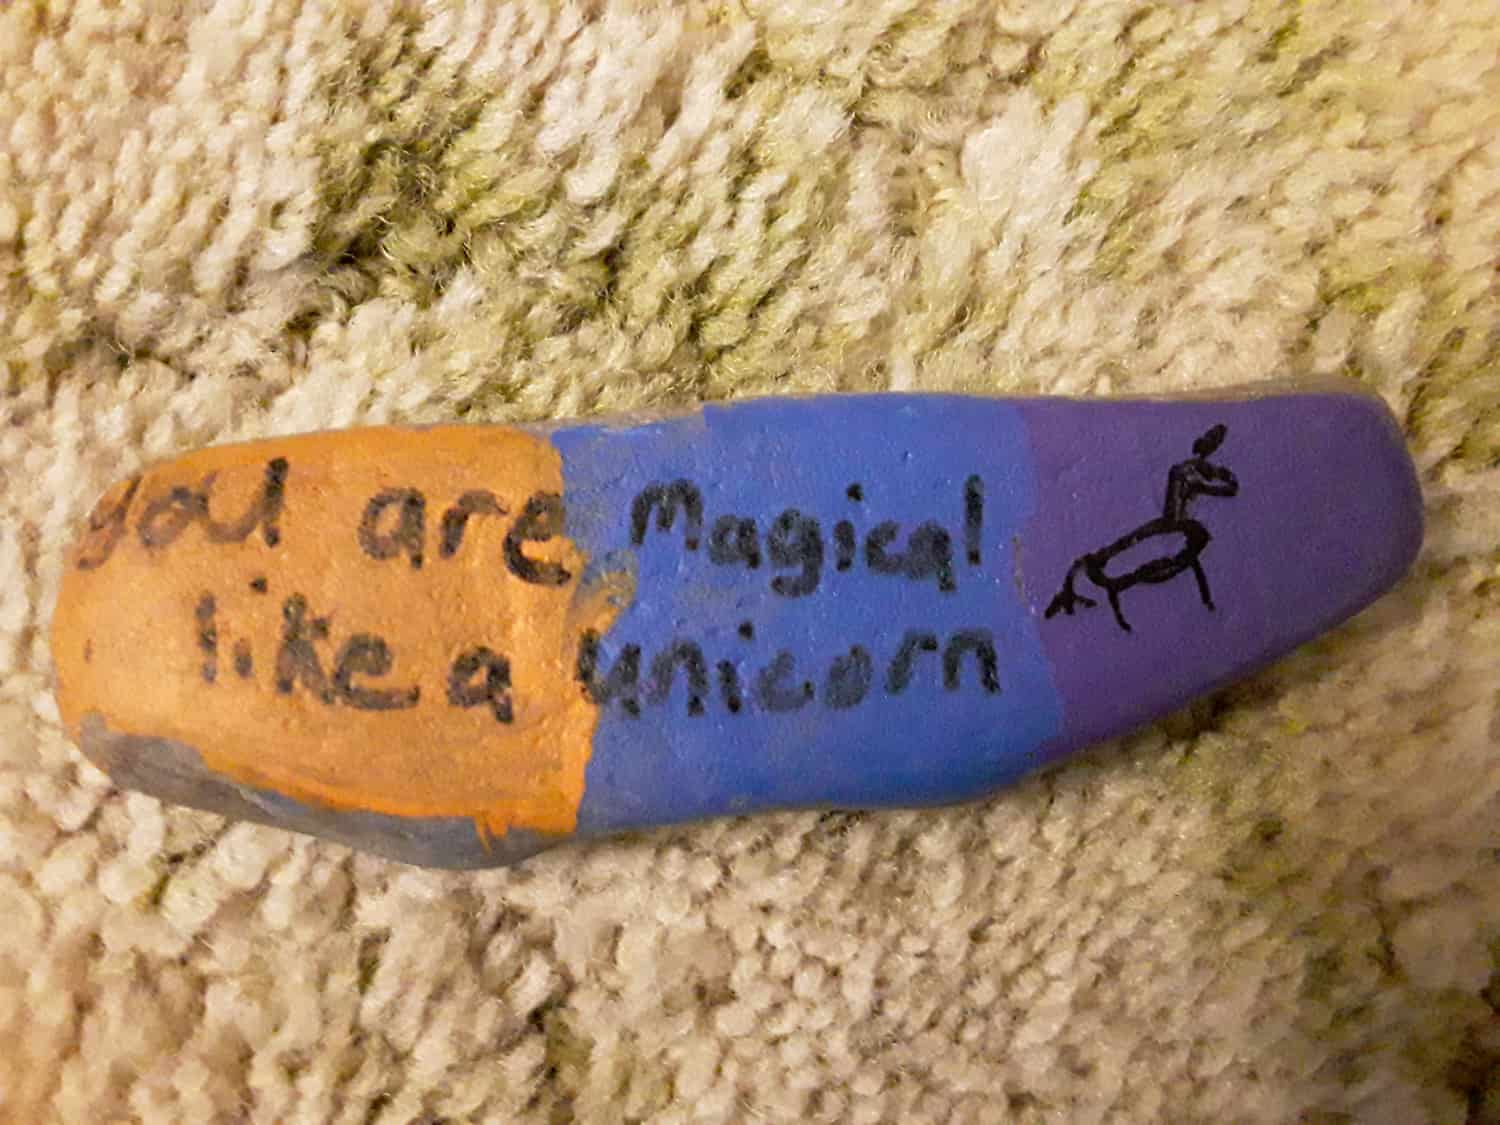 you are magical
like a unicorn